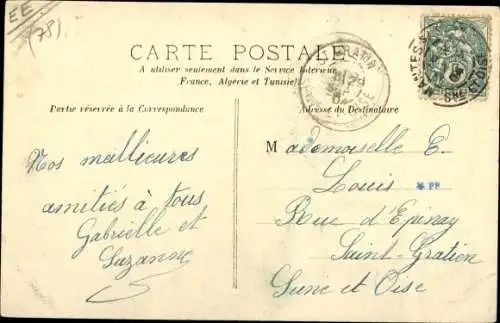 EE
(78)
CARTE POSTALE
A utiliser seulement dans le Service Intérieur
(France, Algérie et Tunisie)
Partie réservée à la Correspondance
Adresse du Destinataire
Nos meillieures
amitiés à tous
Gabrielle et
Suzanne
Mademoiselle E.
Louis
* PP
Rue d'Epinay
Saint-Gratien
Seine et Oise